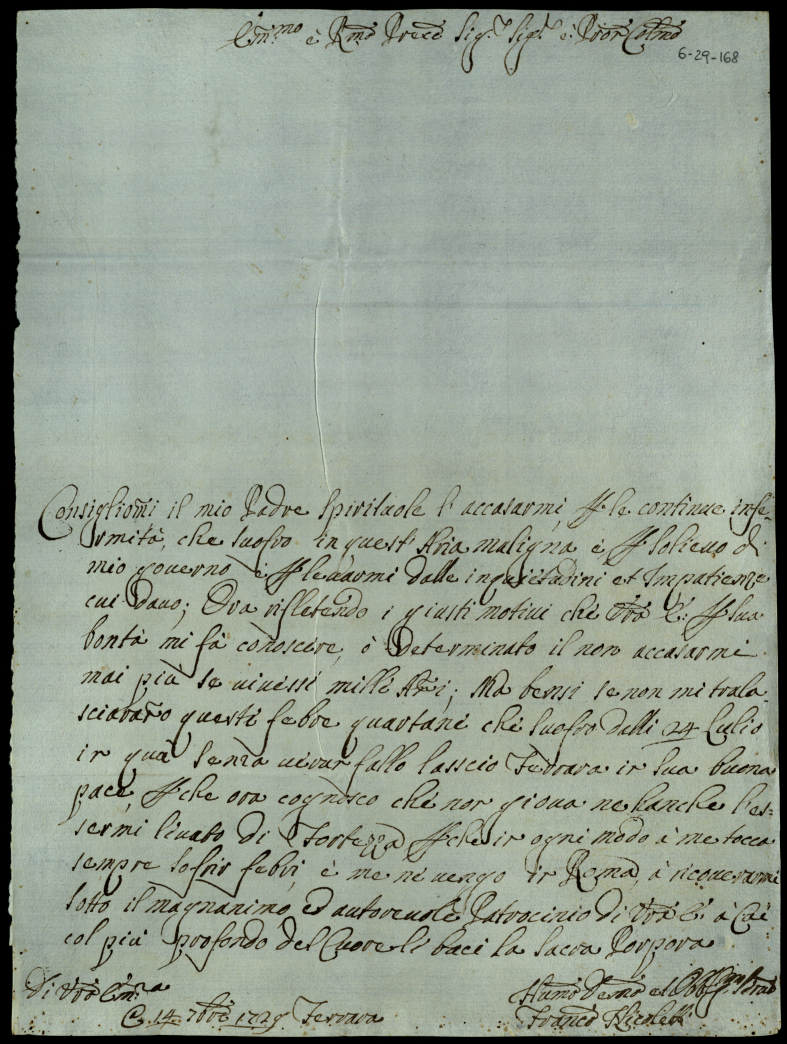 Em.mo è Rmo Sig.r Sig.r è Pron Colmo
6-29-168
Consigliomi il mio Padre Spirituale l'accasarmi, p le continue infe
rmità, che suofro in quest'Aria maligna è p solievo di
mio governo è p levarmi dalle inquietudini et Impatienze
cui davo; Ora rifletendo i giusti motivi che Vra E: p sua
bontà mi fà conoscere, ò Determinato il non accasarmi
mai più se vivessi milli Ani; Ma bensi se non mi trala
sciaraño questi febre quartane chè suofro dalli 24 Lulio
in quà senza verun fallo lasscio Ferrara in sua buona
pace, p che ora cognosco chè non giova ne hanche l'es=
sermi livato di Fortezza p che in ogni modo à me tocca
sempre sofrir febri, è me ne vengo in Roma, à ricoverarmi
sotto il magnanimo, ed autorevole Patrocinio di Vra E. à Cui
col più profondo del Cuore li baci la Sacra Porpora
Di Vra Em.za
14 7bre 1729 Ferrara
Humo Devmo ed
Franco Nicoletti